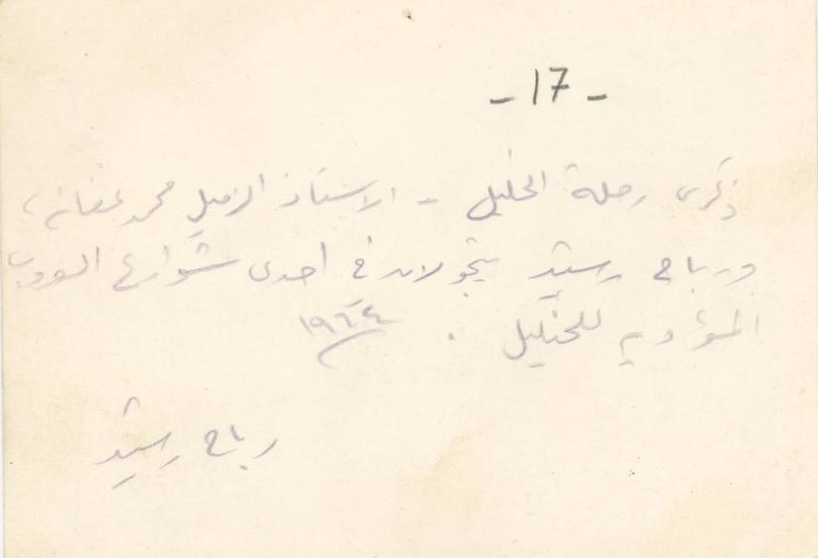 - 17 -
ذكرى رحلة الخليل - الاستاذ الزميل محمد عفانه،
ورباح رشيد يتجولان في احدى شوارع
المؤديه للخليل . ١٩٦٤
رباح رشيد